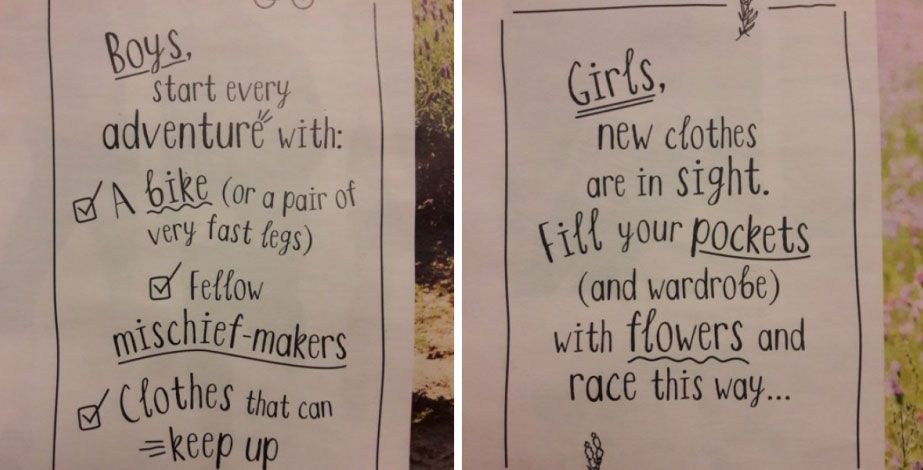 Boys,
start every
adventure with:
A bike (or a pair of
very fast legs)
Fellow
mischief-makers
Clothes that can
keep up
Girls,
new clothes
are in sight.
Fill your pockets
(and wardrobe)
with flowers and
race this way...